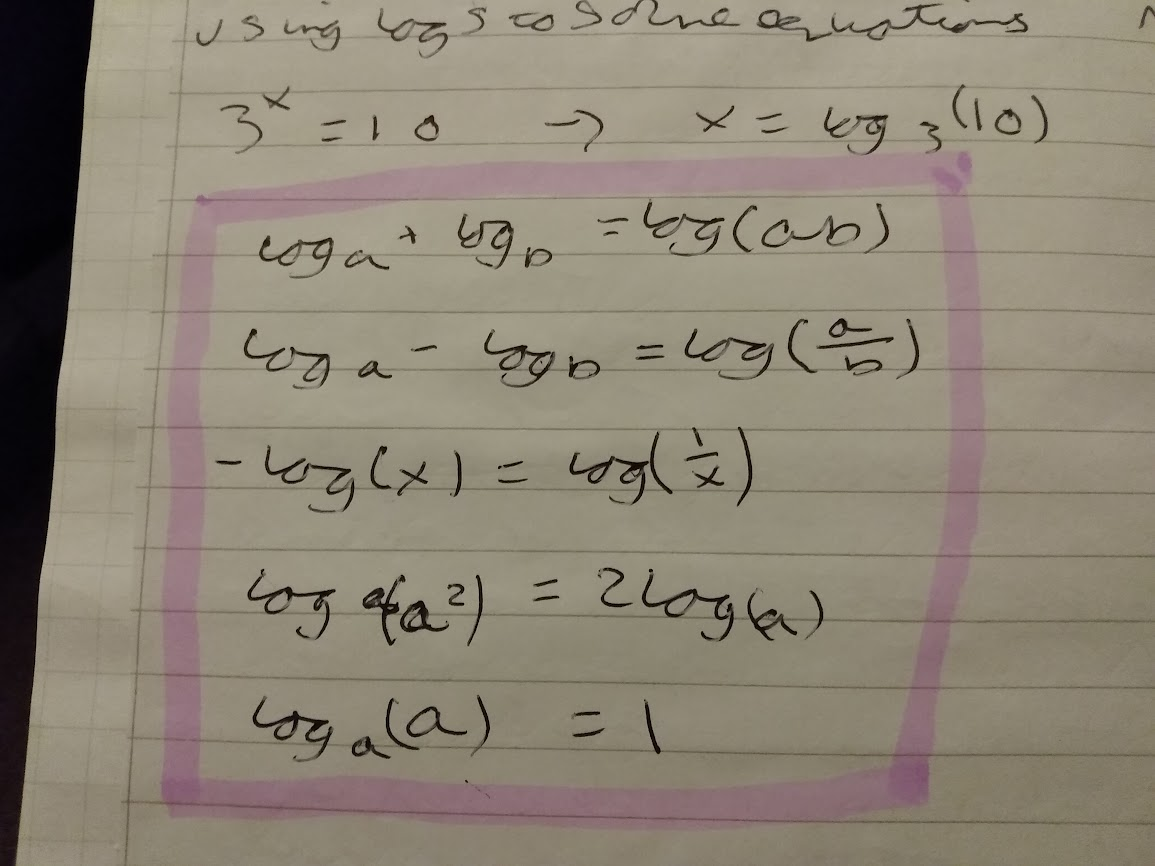 using logs to solve equations
3ˣ = 10 → x = log₃(10)
logₐ + log_b = log(ab)
logₐ - log_b = log(a/b)
-log(x) = log(1/x)
log (a²) = 2log(a)
logₐ(a) = 1